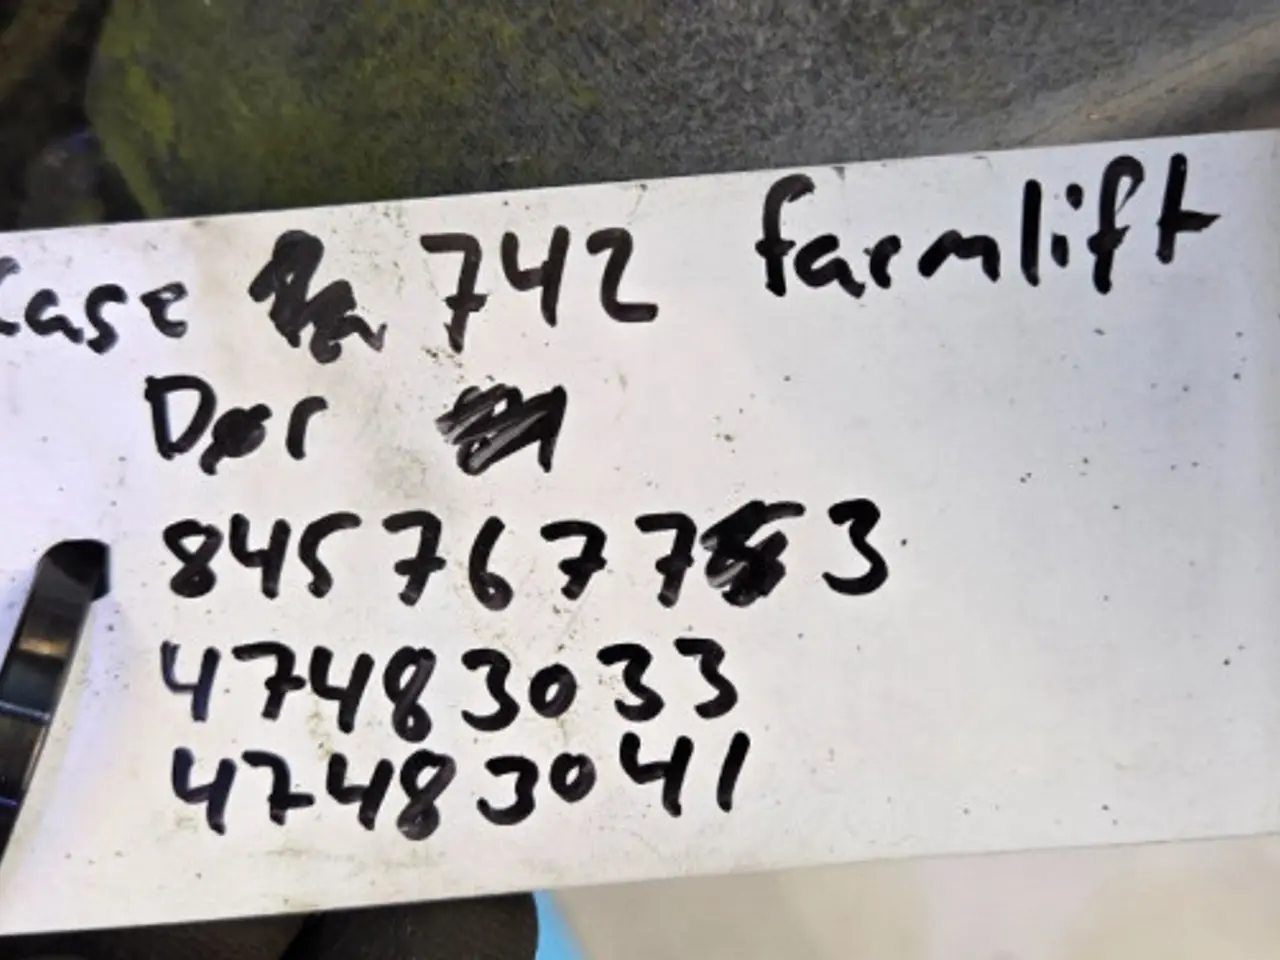 Case 742 farmlift
Dør
84576773
47483033
47483041